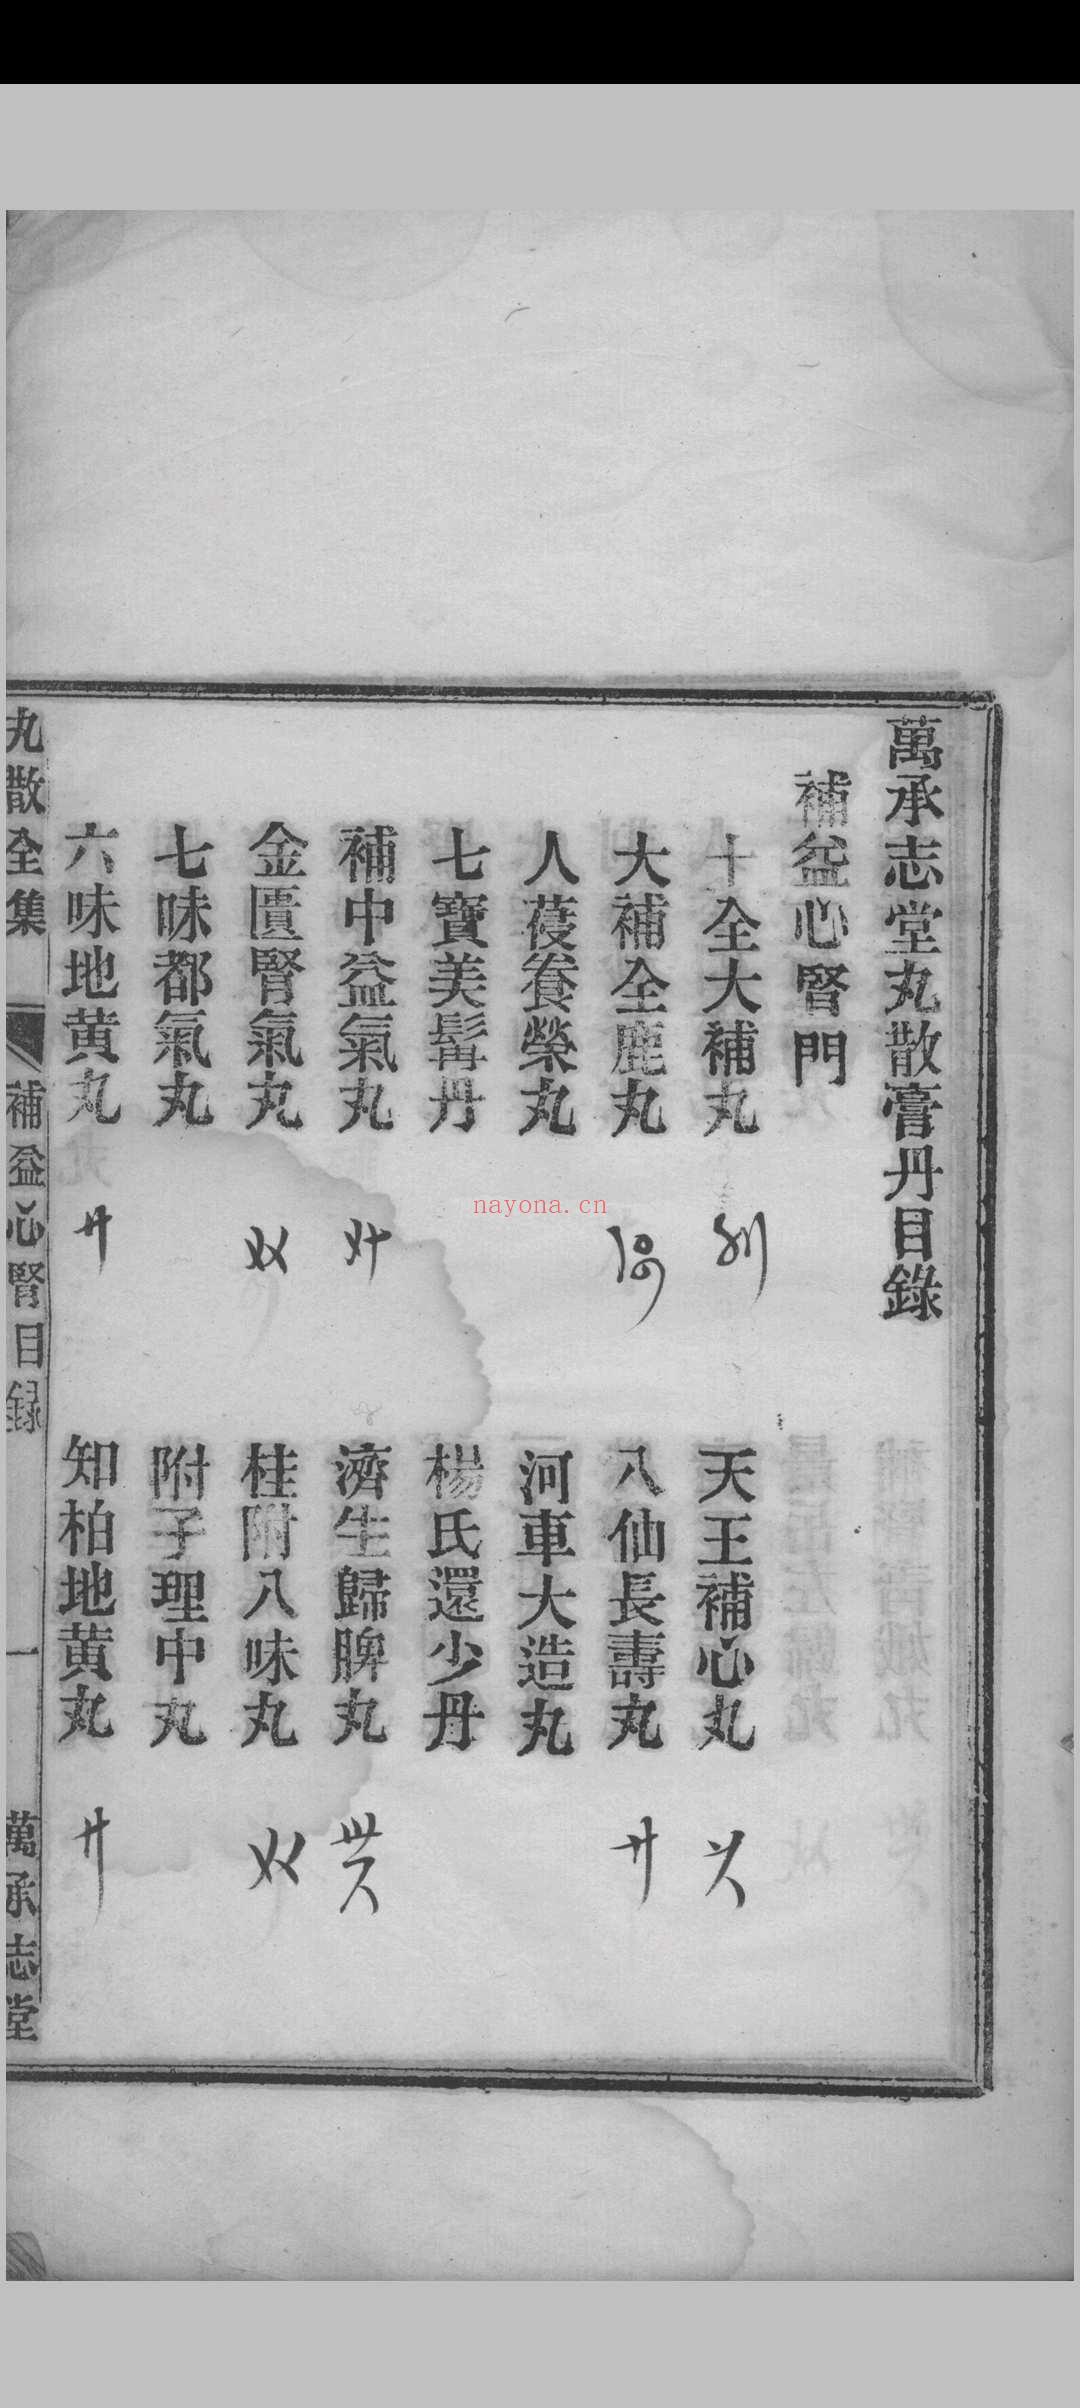 萬承志堂丸散膏丹目錄
補益心腎門
十全大補丸
天王補心丸
大補全鹿丸
八仙長壽丸
人葠養榮丸
河車大造丸
七寶美髯丹
楊氏還少丹
補中益氣丸
濟生歸脾丸
金匱腎氣丸
桂附八味丸
七味都氣丸
附子理中丸
六味地黄丸
知柏地黄丸
丸散全集
補益心腎目録
一
萬承志堂
nayona.cn